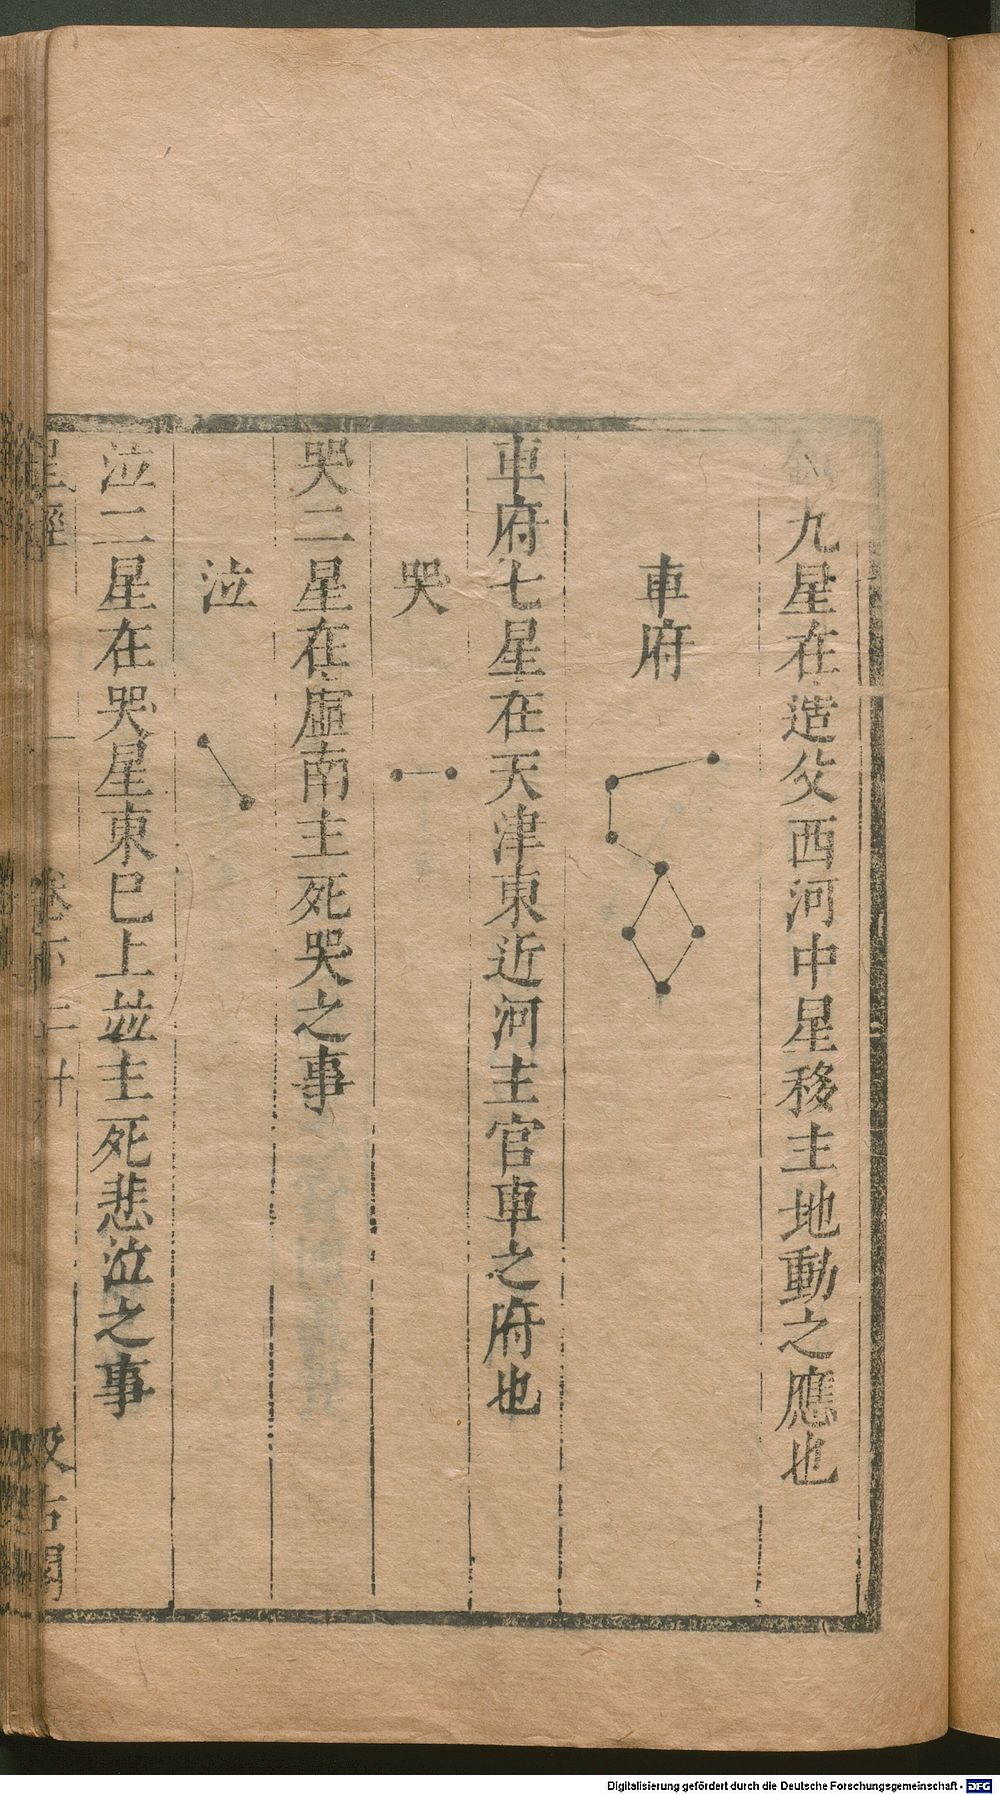 九星在造父西河中星移主地動之應也
車府
車府七星在天津東近河主官車之府也
哭
哭二星在虛南主死哭之事
泣
泣二星在哭星東巳上並主死悲泣之事
星經
卷下二
汲古閣
Digitalisierung gefördert durch die Deutsche Forschungsgemeinschaft - DFG